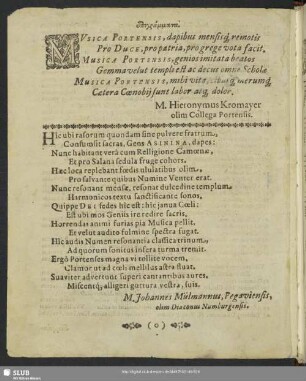 MVSICA PORTENSIS, dapibus mensisq́; remotis
Pro DUCE, pro patria, pro grege vota facit.
MUSICA PORTENSIS, genios imitata beatos
Gemma velut templi est ac decus omne Scholæ
MUSICA PORTENSIS, mihi vita,
Cetera Cœnobij sunt labor atq́; dolor.
M. Hieronymus Kromayer
olim Collega Portensis.
HIc ubi rasorum quondam sine pulvere fratrum,
Consumsit sacras, Gens ASININA, dapes:
Nunc habitant verâ cum Relligione Camœnæ,
Et pro Salana sedula fruge cohors.
Hæc loca replebant fœdis ululatibus olim,
Pro salvante quibus Numine Venter erat.
Nunc resonant mensæ, resonat dulcedine templum
Harmonicos textu sanctificante sonos,
Quippe Dei sedes hic est: hic janua Cœli:
Est ubi mos Geniis ire redire sacris.
Horrendas animi furias pia Musica pellit.
Et velut audito fulmine spectra fugat.
Hic audis Numen resonantia classica trinum,
Ad quorum sonitus infera turma tremit.
Ergò Portenses magna vi tollite vocem,
Clamor ut ad cœli mellitus astra fluat.
Suaviter advertens superi cantantibus aures,
Miscentq́; aligeri guttura vestra, suis.
M. Johannes Mülmannus, Pegaviensis,
olim Diaconus Numburgensis.
(o)
SLUB